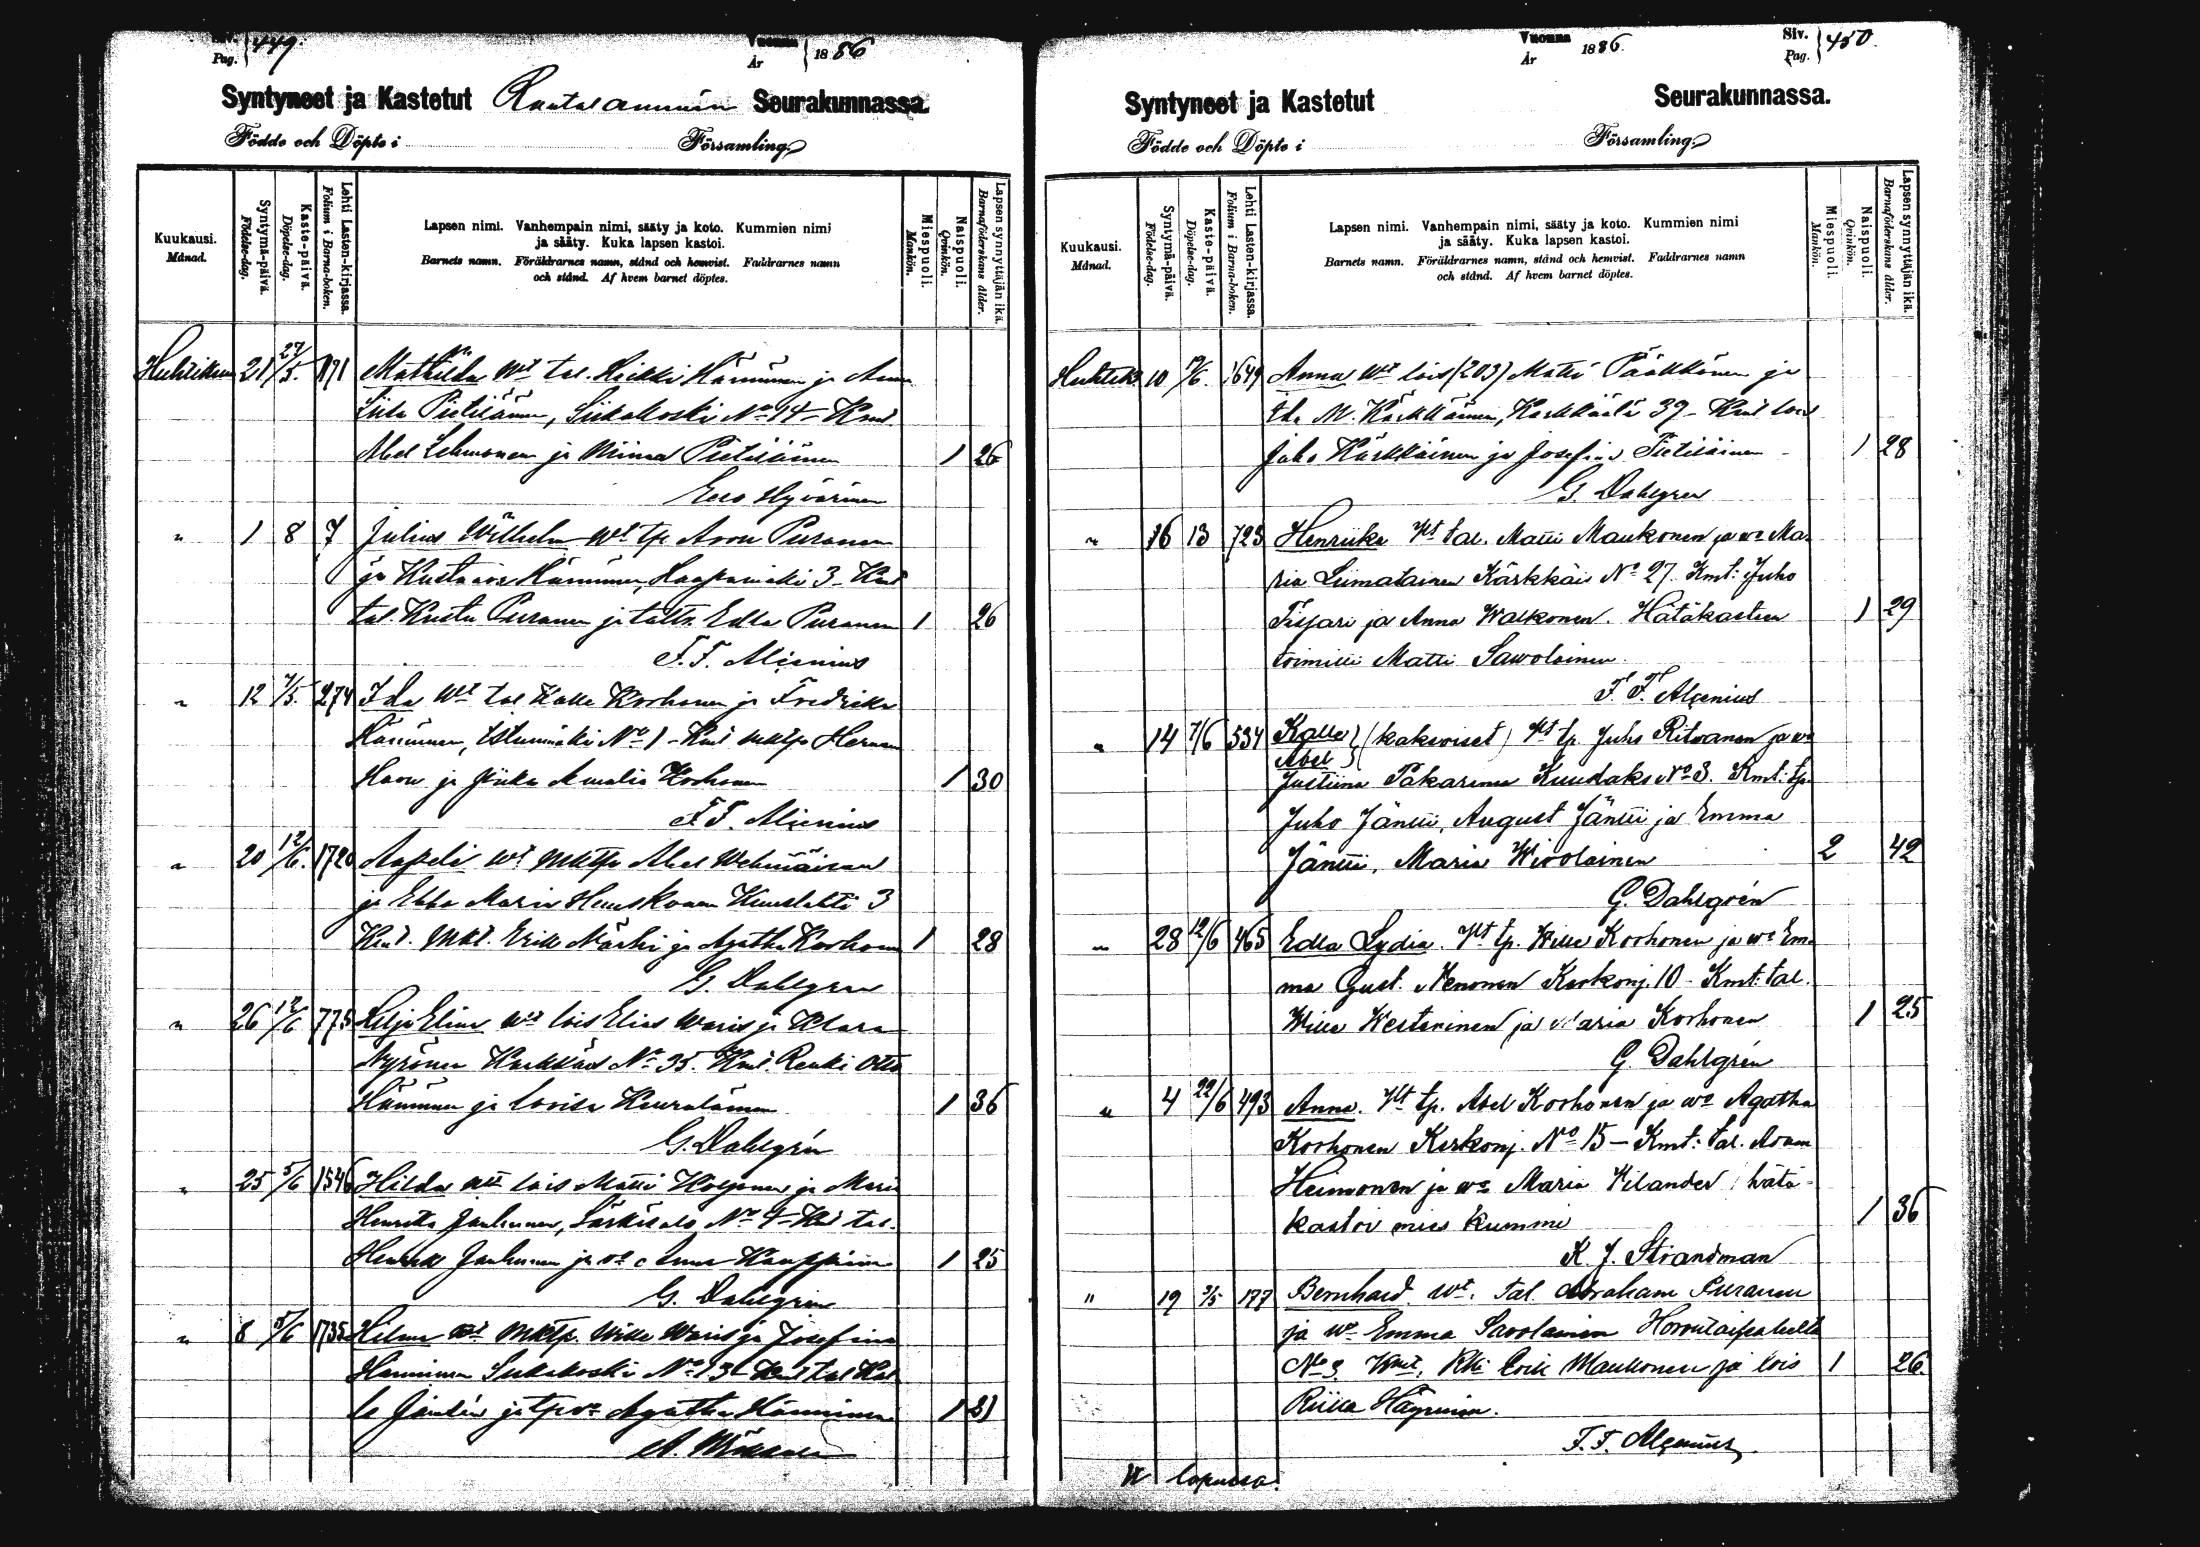 Pag. 449.
Vuonna År 1886
Syntyneet ja Kastetut Rautalammin Seurakunnassa.
Födde och Döpte i Församling
Kuukausi. Månad.
Syntymä-päivä. Födelse-dag.
Kaste-päivä. Döpelse-dag.
Lehti Lasten-kirjassa. Folium i Barna-boken.
Lapsen nimi. Vanhempain nimi, sääty ja koto. Kummien nimi
ja sääty. Kuka lapsen kastoi.
Barnets namn. Föräldrarnes namn, stånd och hemvist. Faddrarnes namn
och stånd. Af hvem barnet döptes.
Miespuoli. Mankön.
Naispuoli. Qvinkön.
Lapsen synnyttäjän ikä. Barnaföderskans ålder.
Huhtikuu 21 27/5. 171 Mathilda Wt tal. Heikki Hänninen ja Anna
Liisa Pietiläinen, Siikakoski No 14 - Kmt
Abel Lehmonen ja Miina Pietiläinen 1 26
Eero Hyvärinen
" 1 8 7 Julius Wilhelm Wt tp Aron Puranen
ja Kustaava Hänninen, Haapamäki 3 - Kmt
tal. Kustu Puranen ja taltr. Edla Puranen 1 26
F. F. Alcenius
" 12 7/5. 274 Ida Wt tal Kalle Korhonen ja Fredrika
Hänninen, No 1 - Kmt mktp Herman
ja Amalia Korhonen 1 30
F. F. Alcenius
" 20 12/6. 1720 Aapeli Wt Mktp Abel Wehmäinen
ja Ebba Maria 3
Kmt. Mkt. Erik Närhi ja Agatha Korhonen 1 28
G. Dahlgren
" 26 12/6 775 Lilja Elina Wt lois Elias Waris ja Klara
Nyrönen Karkkäis No 35. Kmt Renki Otto
Hänninen ja Lovisa 1 36
G. Dahlgrén
" 25 5/6 1546 Hilda Wt lois Matti ja Maria
Henrika Janhunen, Särkisalo No 4 - Kmt tal.
Henrik Janhunen ja wo Anna Kauppinen 1 25
G. Dahlgrén
" 8 5/6 1735 Hilma Wt Mktp. Wille Waris ja Josefina
Hänninen Siikakoski No 13 - Kmt tal Kal
le ja tp wo Agatha Hänninen 1
A.
Vuonna År 1886.
Siv. Pag. 450.
Syntyneet ja Kastetut Seurakunnassa.
Födde och Döpte i Församling
Kuukausi. Månad.
Syntymä-päivä. Födelse-dag.
Kaste-päivä. Döpelse-dag.
Lehti Lasten-kirjassa. Folium i Barna-boken.
Lapsen nimi. Vanhempain nimi, sääty ja koto. Kummien nimi
ja sääty. Kuka lapsen kastoi.
Barnets namn. Föräldrarnes namn, stånd och hemvist. Faddrarnes namn
och stånd. Af hvem barnet döptes.
Miespuoli. Mankön.
Naispuoli. Qvinkön.
Lapsen synnyttäjän ikä. Barnaföderskans ålder.
Huhtik. 10 1649 Anna Wt lois (203) Matti Pääkkönen ja
M. Kärkkäinen, Karkkäälä 39 - Kmt lois
Juho Kärkkäinen ja Josefina Pietiläinen 1 28
G. Dahlgren
" 16 13 723 Henriika Wt tal. Matti Maukonen ja wo Ma-
ria Liimatainen Kärkkäis No 27. Kmt: Juho
Tissari ja Anna Walkonen. Hätäkasteen
toimitti Matti Sawolainen.
1 29
F. F. Alcenius
" 14 7/6 534 Kalle } (kaksoiset) Wt tp. Juho Ritvanen ja wo
Abel }
Justiina Pakarinen Kuudaks No 3. Kmt: tp.
Juho Jäntti, August Jäntti ja Emma
Jäntti, Maria Wivolainen 2 42
G. Dahlgrén
" 28 12/6 465 Edla Lydia. Wt tp. Wille Korhonen ja wo Em-
ma Gust. Nenonen Kerkonj. 10 - Kmt: tal.
Wille Westerinen ja Maria Korhonen 1 25
G. Dahlgrén
" 4 22/6 493 Anna. Wt tp. Abel Korhonen ja wo Agatha
Korhonen Kerkonj. No 15 - Kmt: tal. Aron
Heimonen ja wo Maria Wilander, hätä-
kastoi mies kummi 1 36
K. J. Strandman
" 19 3/5 177 Bernhard Wt. Tal. Abraham Puranen
ja wo Emma Savolainen
No 3. Kmt. Rki Erik Maukonen ja lois 1 26.
Riikka Häyrinen.
F. F. Alcenius
lopussa.